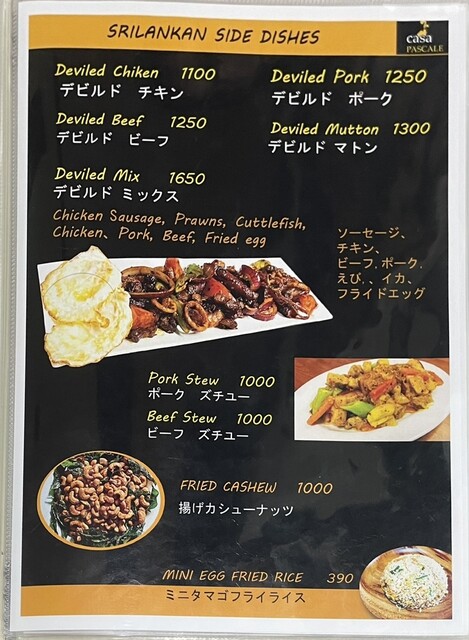 SRILANKAN SIDE DISHES
casa
PASCALE
Deviled Chiken 1100
デビルド チキン
Deviled Pork 1250
デビルド ポーク
Deviled Beef 1250
デビルド ビーフ
Deviled Mutton 1300
デビルド マトン
Deviled Mix 1650
デビルド ミックス
Chicken Sausage, Prawns, Cuttlefish,
Chicken、Pork, Beef, Fried egg
ソーセージ、
チキン、
ビーフ,ポーク,
えび,、イカ、
フライドエッグ
Pork Stew 1000
ポーク ズチュー
Beef Stew 1000
ビーフ ズチュー
FRIED CASHEW 1000
揚げカシューナッツ
MINI EGG FRIED RICE 390
ミニタマゴフライライス